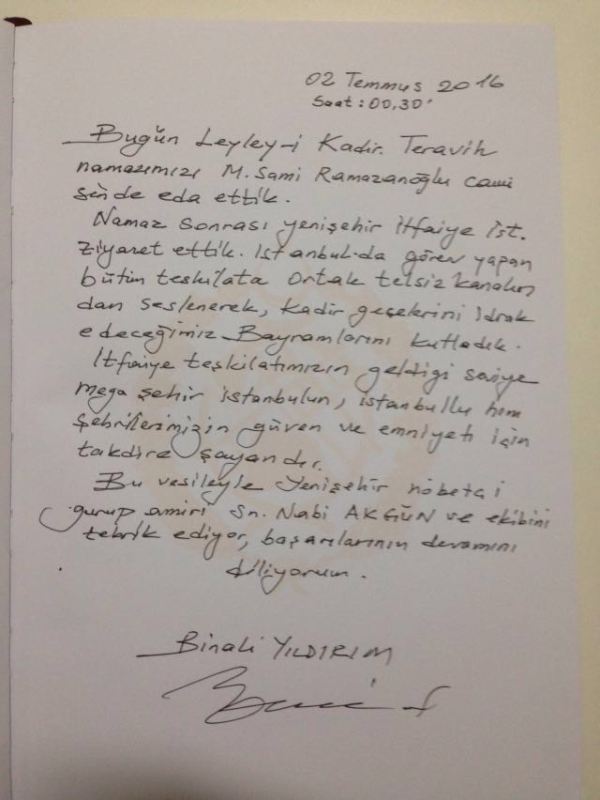 02 Temmus 2016
Saat: 00,30'
Bugün Leyley-i Kadir. Teravih
namazımızı M. Sami Ramazanoğlu cami
sinde eda ettik.
Namaz sonrası yenişehir itfaiye ist.
ziyaret ettik. istanbul-da görev yapan
bütün teskilata ortak telsiz kanalın
dan seslenerek, Kadir geçelerini idrak
edeceğimiz Bayramlarını kutladık.
İtfaiye teşkilatımızın geldiği seviye
mega şehir istanbulun, istanbullu hem
şehrilerimizin güven ve emniyeti için
takdire şayandır.
Bu vesileyle Yenişehir nöbetçi
gurup amiri Sn. Nabi AKGÜN ve ekibini
tebrik ediyor, başarılarının devamını
diliyorum.
Binali YILDIRIM